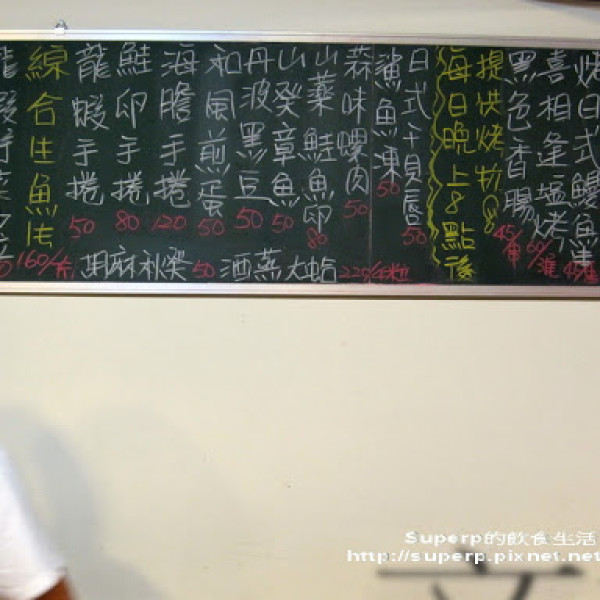 烤日式鰻魚串 45/串
喜相逢塩烤 60/
黑色香腸 45/
提供烤物
每日晚上8點後
日式干貝唇 50
鯊魚凍 50
蒜味螺肉 50
山藥鮭魚卵 80
山癸章魚 50
丹波黑豆 50
和風煎蛋 50
海膽手捲 120
鮭卵手捲 80
龍蝦手捲 50
綜合生魚片 160/片
龍蝦
酒蒸大蛤 220/
胡麻秋葵 50
Superp的飲食生活
http://superp.pixnet.net